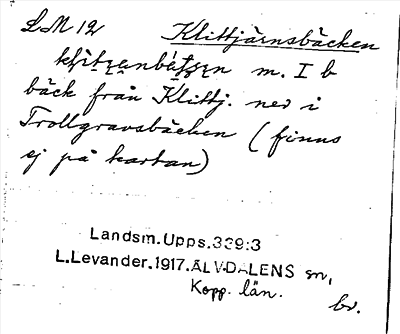 LM 12 Klittjärnsbäcken
m. I b
bäck från Klittj. ned i
Trollgravsbäcken (finns
ej på kartan)
Landsm.Upps.339:3
L.Levander.1917.ÄLVDALENS sn,
Kopp. län.
br.